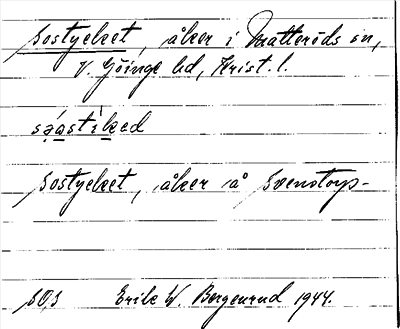 Sostycket, åker i Matteröds sn,
V. Göinge hd, Krist. l.
Sostycket, åker å Svenstorp-
80,3 Erik W. Bergenrud 1944.